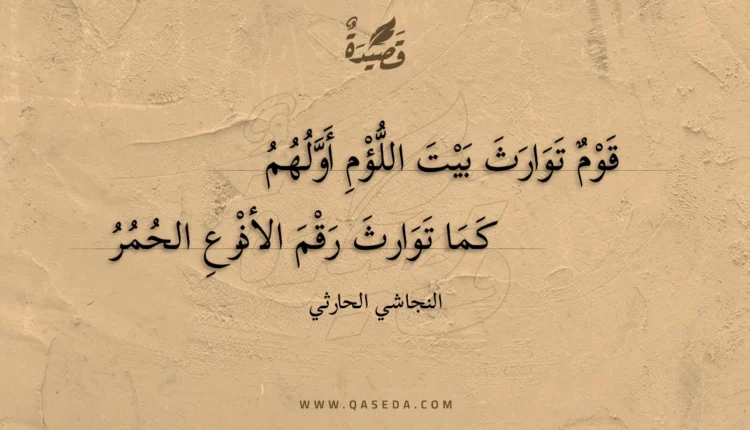 قَصِيدَةٌ
قَوْمٌ تَوَارَثَ بَيْتَ اللُّؤْمِ أَوَّلُهُمُ
كَمَا تَوَارثَ رَقْمَ الأذْرُعِ الحُمُرُ
النجاشي الحارثي
WWW.QASEDA.COM